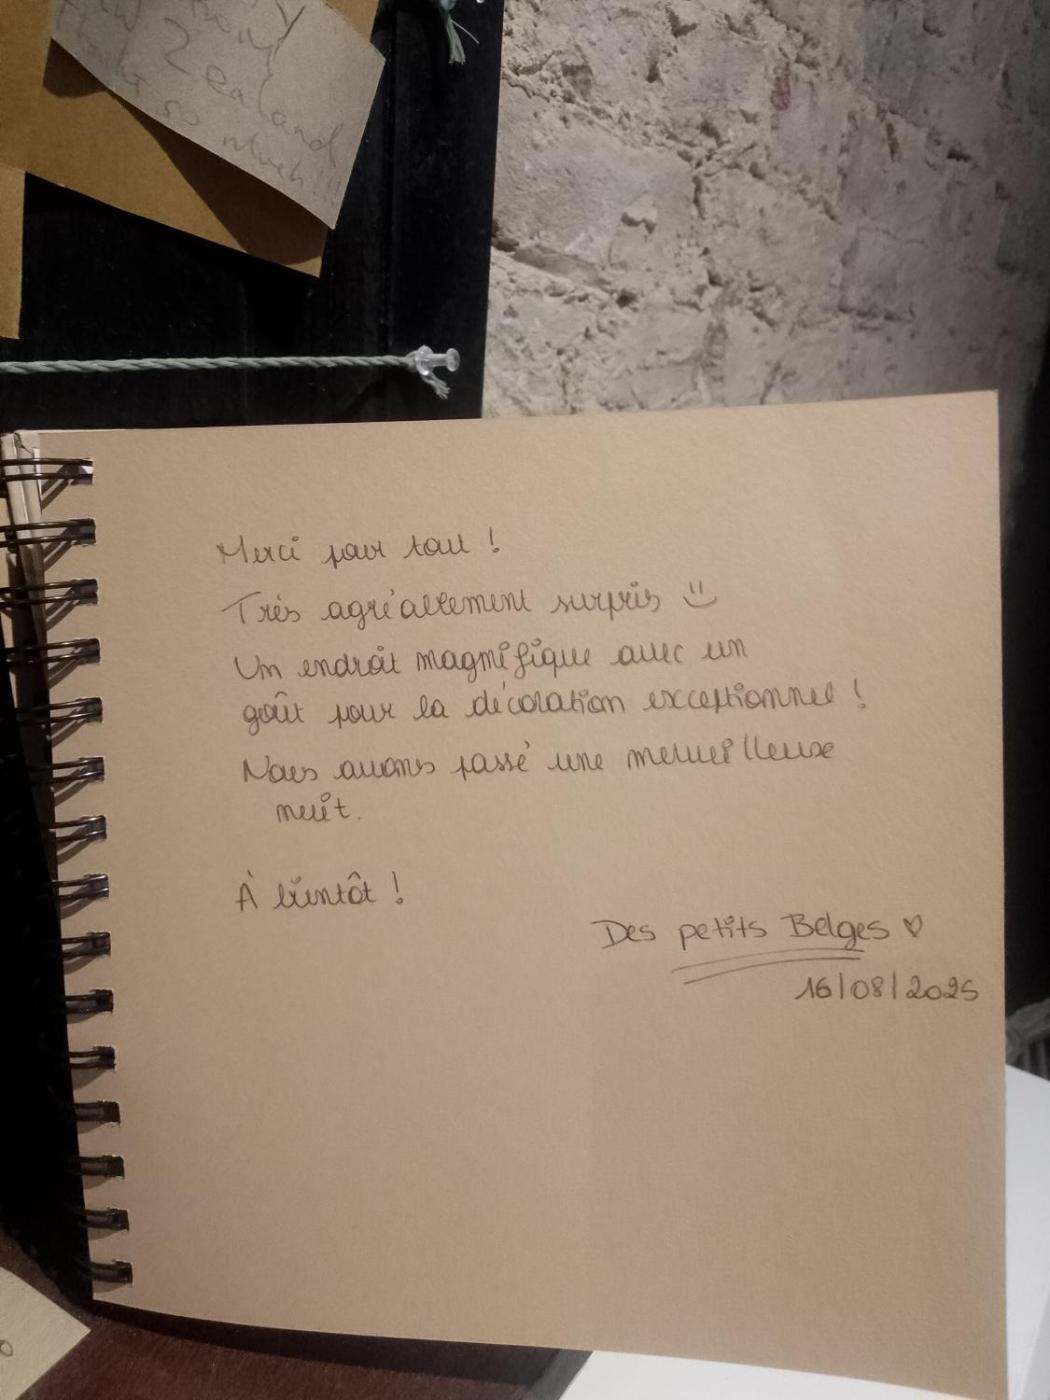 y
Zealand
so much!!!
Merci pour tout !
Très agréablement surpris :)
Un endroit magnifique avec un
goût pour la décoration exceptionnel !
Nous avons passé une merveilleuse
nuit.
À bientôt !
Des petits Belges ♡
16/08/2025